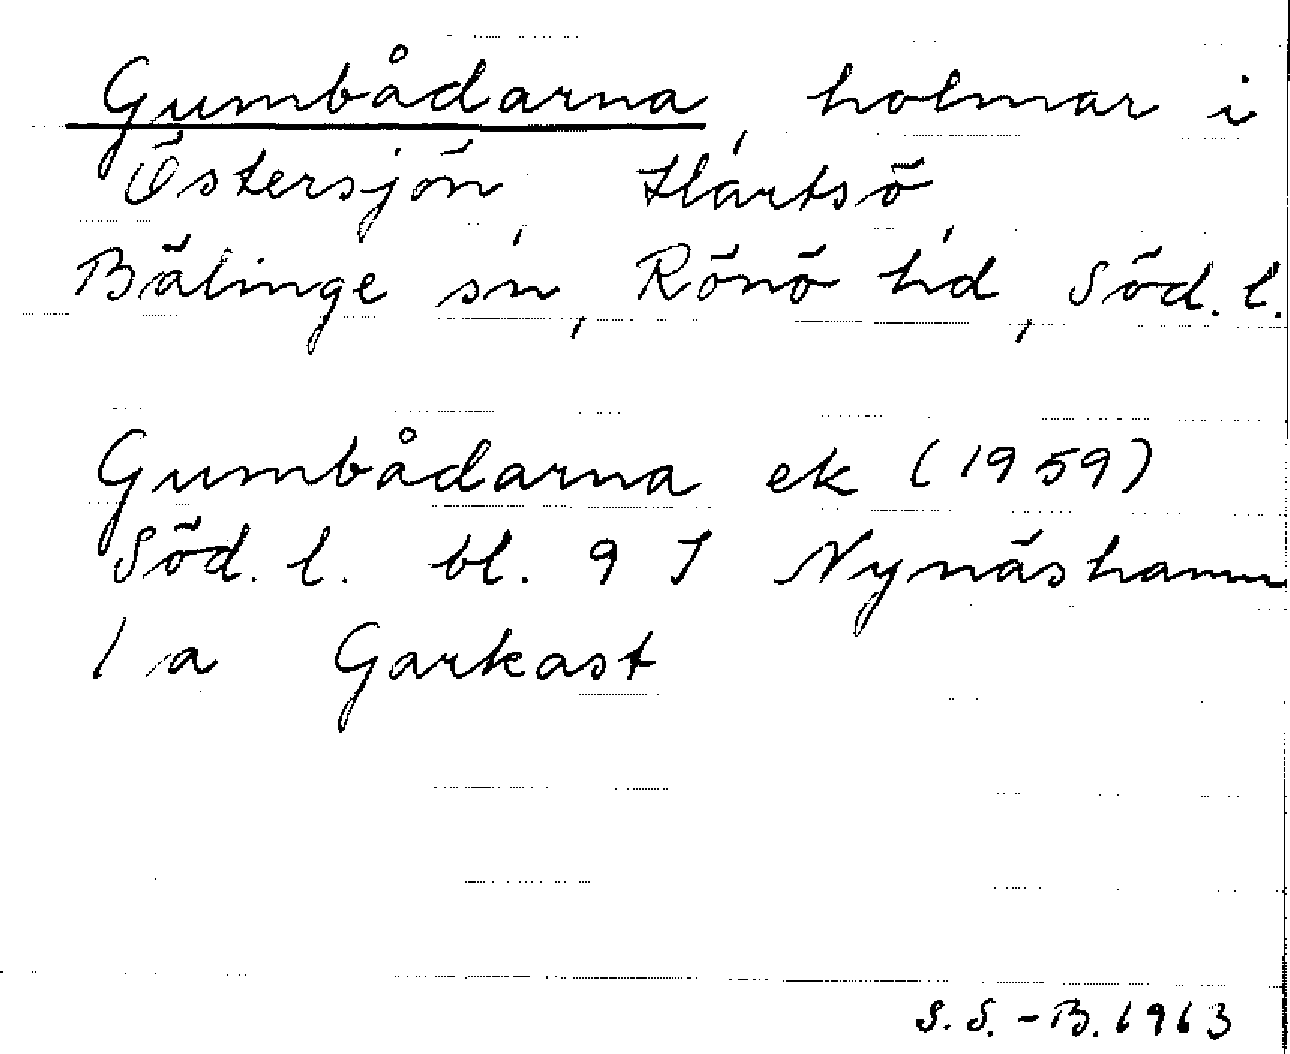 Gumbådarna, holmar i
Östersjön, Hartsö,
Bälinge sn, Rönö hd, Söd. l.
Gumbådarna ek (1959)
Söd. l. bl. 9 I Nynäshamn
1 a Garkast
S.S.-B. 1963